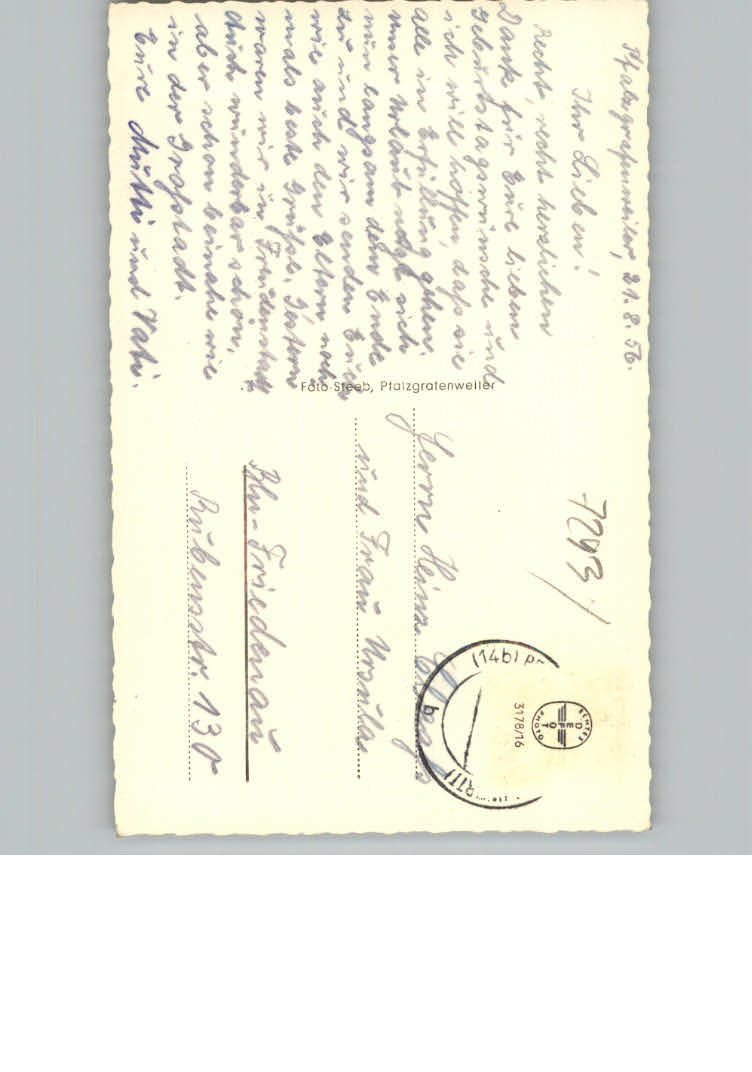 Pfalzgrafenweiler, 21. 8. 56.
Ihr Lieben!
Recht, recht herzlichen
Dank für Eure lieben
Geburtstagswünsche und
ich will hoffen, daß sie
alle in Erfüllung gehen.
Unser Urlaub neigt sich
nun langsam dem Ende
zu und wir senden Euch
wie auch den Eltern noch-
mals beste Grüße. Gestern
waren wir in Freudenstadt
auch wunderbar schön,
aber schon beinahe wie
in der Großstadt.
Eure Mutti und Vati.
Foto-Steeb, Pfalzgrafenweiler
Herrn Heinz
und Frau Ursula
Bln-Friedenau
Rubensstr. 130
7293/
(14b) P
b
ECHTES
DEFOT
PHOTO
3178/16